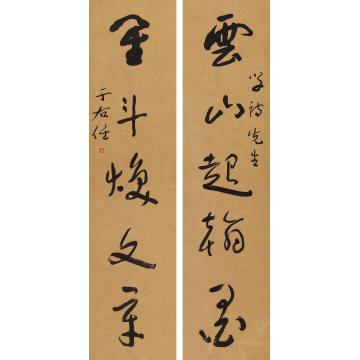 雲山起翰墨
学诗先生
星斗焕文章
于右任